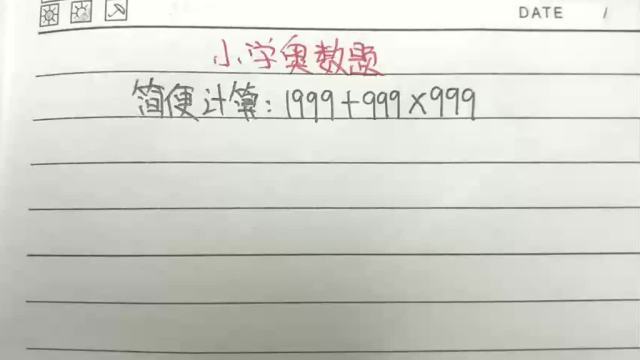 DATE /
小学奥数题
简便计算：1999+999×999